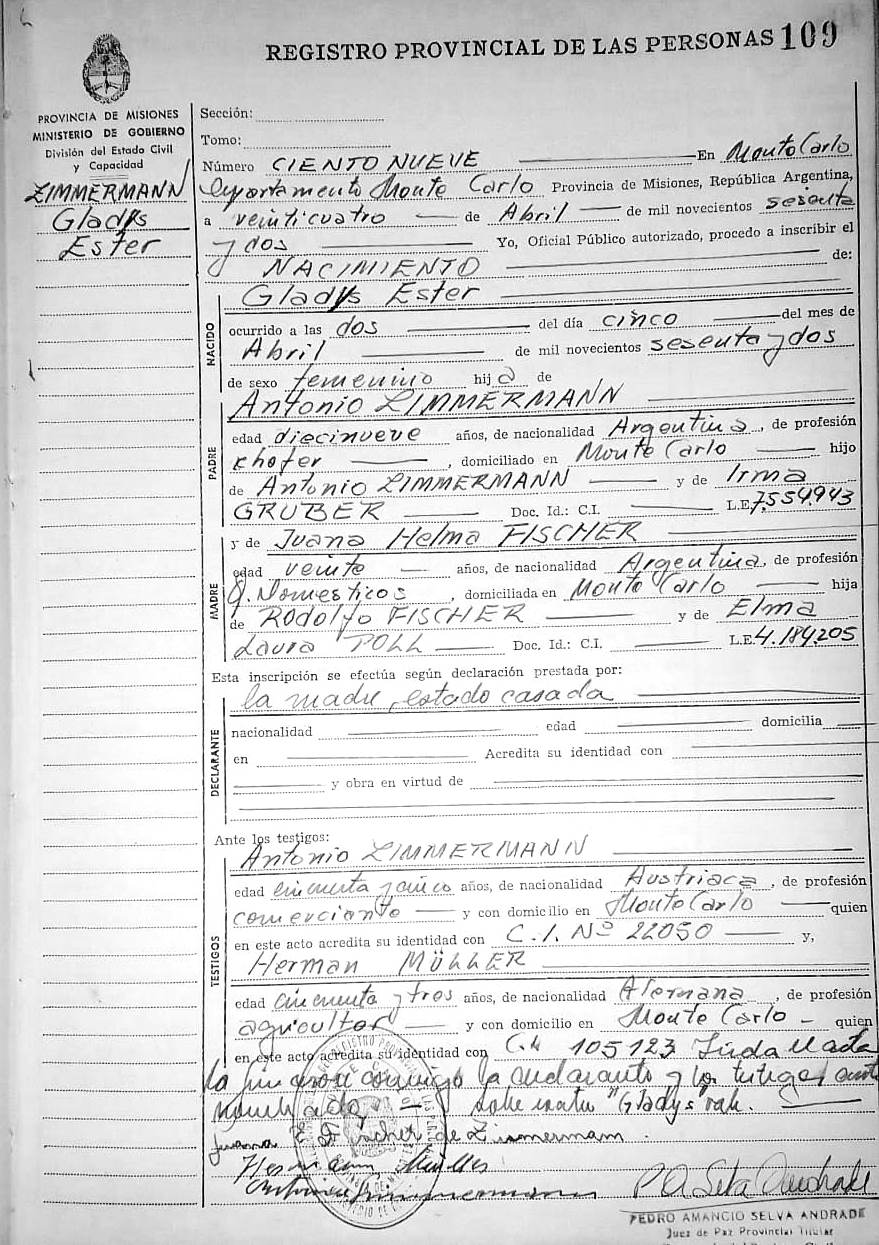 REGISTRO PROVINCIAL DE LAS PERSONAS 109
PROVINCIA DE MISIONES
MINISTERIO DE GOBIERNO
División del Estado Civil
y Capacidad
ZIMMERMANN
Gladys
Ester
Sección:
Tomo:
Número CIENTO NUEVE En Monte Carlo
Departamento Monte Carlo Provincia de Misiones, República Argentina,
a veinticuatro de Abril de mil novecientos sesenta
y dos Yo, Oficial Público autorizado, procedo a inscribir el
NACIMIENTO de:
Gladys Ester
NACIDO
ocurrido a las dos del día cinco del mes de
Abril de mil novecientos sesenta y dos
de sexo femenino hija de
Antonio ZIMMERMANN
PADRE
edad diecinueve años, de nacionalidad Argentina, de profesión
chofer, domiciliado en Monte Carlo hijo
de Antonio ZIMMERMANN y de Irma
GRUBER Doc. Id.: C.I. L.E. 7.554.943
y de Juana Helma FISCHER
MADRE
edad veinte años, de nacionalidad Argentina, de profesión
Q. Domesticos, domiciliada en Monte Carlo hija
de Rodolfo FISCHER y de Elma
Laura POLL Doc. Id.: C.I. L.E. 4.184.205
Esta inscripción se efectúa según declaración prestada por:
la madre, estado casada
DECLARANTE
nacionalidad edad domicilia
en Acredita su identidad con
y obra en virtud de
Ante los testigos:
Antonio ZIMMERMANN
TESTIGOS
edad cincuenta y cinco años, de nacionalidad Austriaca, de profesión
comerciante y con domicilio en Monte Carlo quien
en este acto acredita su identidad con C.I. Nº 22050 y,
Herman MÜLLER
edad cincuenta y tres años, de nacionalidad Alemana, de profesión
agricultor y con domicilio en Monte Carlo quien
en este acto acredita su identidad con C.I. 105123 Leida el acta
la firmaron conmigo la declarante y los testigos ante
nombrados. "Gladys" vale.
Juana H. Fischer de Zimmermann.
Hermann Müller
Antonio Zimmermann
PEDRO AMANCIO SELVA ANDRADE
Juez de Paz Provincial Titular